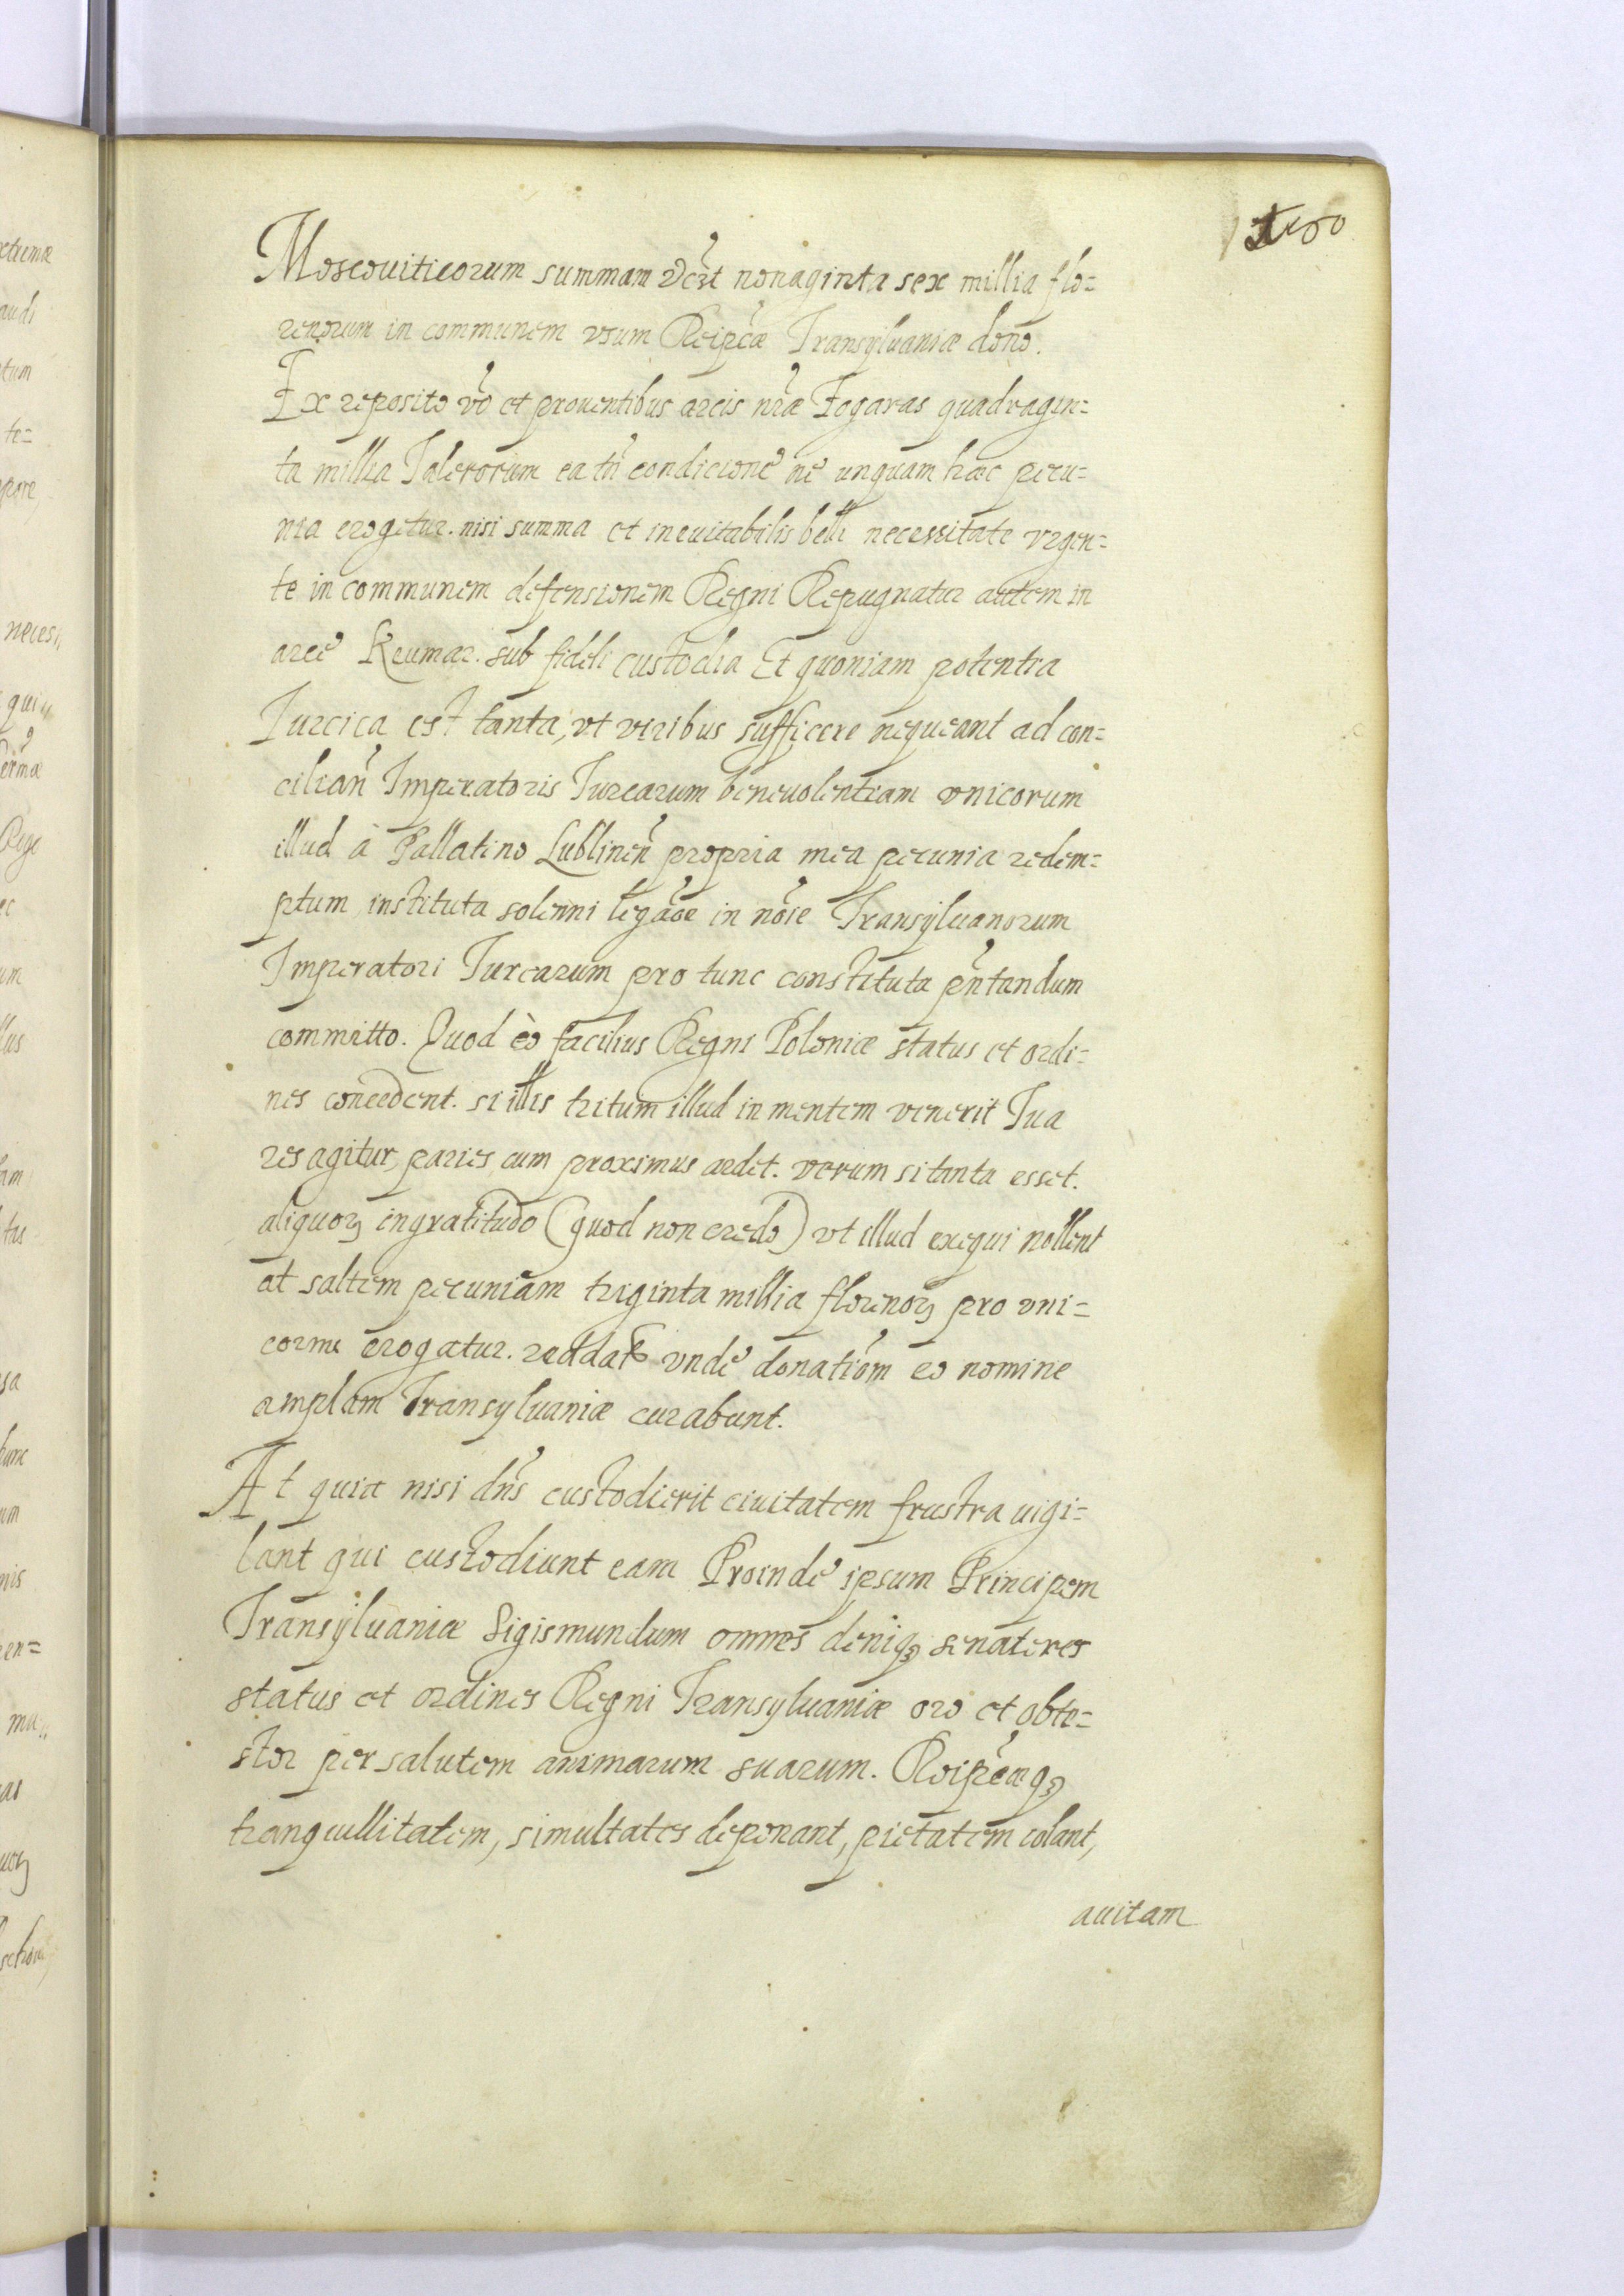 Moscouiticorum summam vczt nonaginta sex millia flo=
renorum in communem vsum Reipcæ Transyluaniæ dono.
Ex reposito vo et prouentibus arcis nræ Fogaras quadragin=
ta millia Talerorum ea tn condicione ne unquam hæc pecu=
nia erogetur. nisi summa et ineuitabilis belli necessitate vrgen=
te in communem defensionem Regni Repugnatur autem in
arce Keumar. sub fideli custodia Et quoniam potentia
Turcica est tanta, vt viribus sufficere nequeant ad con=
cilian Imperatoris Turcarum beneuolentiam vnicorum
illud à Pallatino Lublinen propria mea pecunia redem=
ptum instituta solenni legaoe in noie Transyluanorum
Imperatori Turcarum pro tunc constituta pntandum
committo. Quod eò facilius Regni Poloniæ status et ordi=
nes concedent. si illis tritum illud in mentem venerit Tua
res agitur, paries cum proximus ardet. verum si tanta esset.
aliquoꝝ ingratitudo (quod non credo) vt illud exequi nollent
at saltem pecuniam triginta millia florenoꝝ pro vni=
corni erogatur. reddat vnde donatiom eo nomine
amplam Transyluaniæ curabunt.
At quia nisi dns custodierit ciuitatem frustra uigi=
lant qui custodiunt eam Proinde ipsum Principem
Transyluaniæ Sigismundum omnes deniqꝫ senatores
status et ordines Regni Transyluaniæ oro et obte=
stor per salutem animarum suarum. Reipcæqꝫ
tranquillitatem, simultates deponant, pietatem colant,
auitam